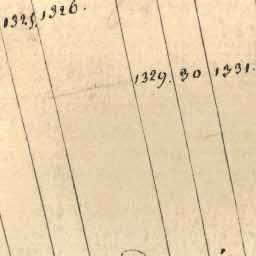 1325. 1326.
1329. 30 1331.